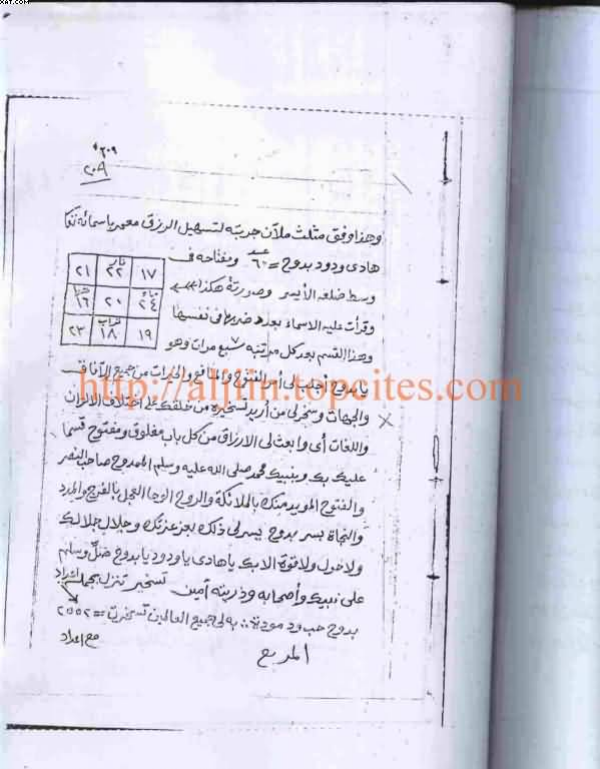 XAT.COM
٢٠٩
٢٠٩
وهذا وفق مثلث ملآن جربته لتسهيل الرزق معمر باسمائه تعا
هادى ودود بدوح = ٦٠ عدد ومفتاحه ف
وسط ضلعه الأيسر وصورته هكذا
وقرأت عليه الاسماء بعدد ضربها فى نفسها
وهذا القسم بعد كل مرتبه سبع مرات وهو
٢١ نار ٢٢ ١٧
هوا ١٦ ٢٠ ماء ٢٤
٢٣ تراب ١٨ ١٩
يا بدوح اجلب لى أمر الفتوح والمنافع والخيرات من جميع الآفاق
والجهات وسخر لى من أريد تسخيره من خلقك على اختلاف الالوان
واللغات أى وابعث لى الارزاق من كل باب مغلوق ومفتوح قسما
عليك بك وبنبيك محمد صلى الله عليه وسلم الممدوح صاحب النصر
والفتوح المويد منك بالملائكة والروح الوحا العجل بالفرج والمدد
والنجاة بسر بدوح يسر لى ذلك بعز عزتك وجلال جلالك
ولا حول ولا قوة الا بك يا هادى يا ودود يا بدوح صل وسلم
على نبيك وأصحابه وذريته آمين تسخير تنزل بجملة
بدوح حب ود مودية :: به لى جميع العالمين تسخرت = ٢٥٥٢
مع اعداد
المربع
http://aljiim.topcites.com